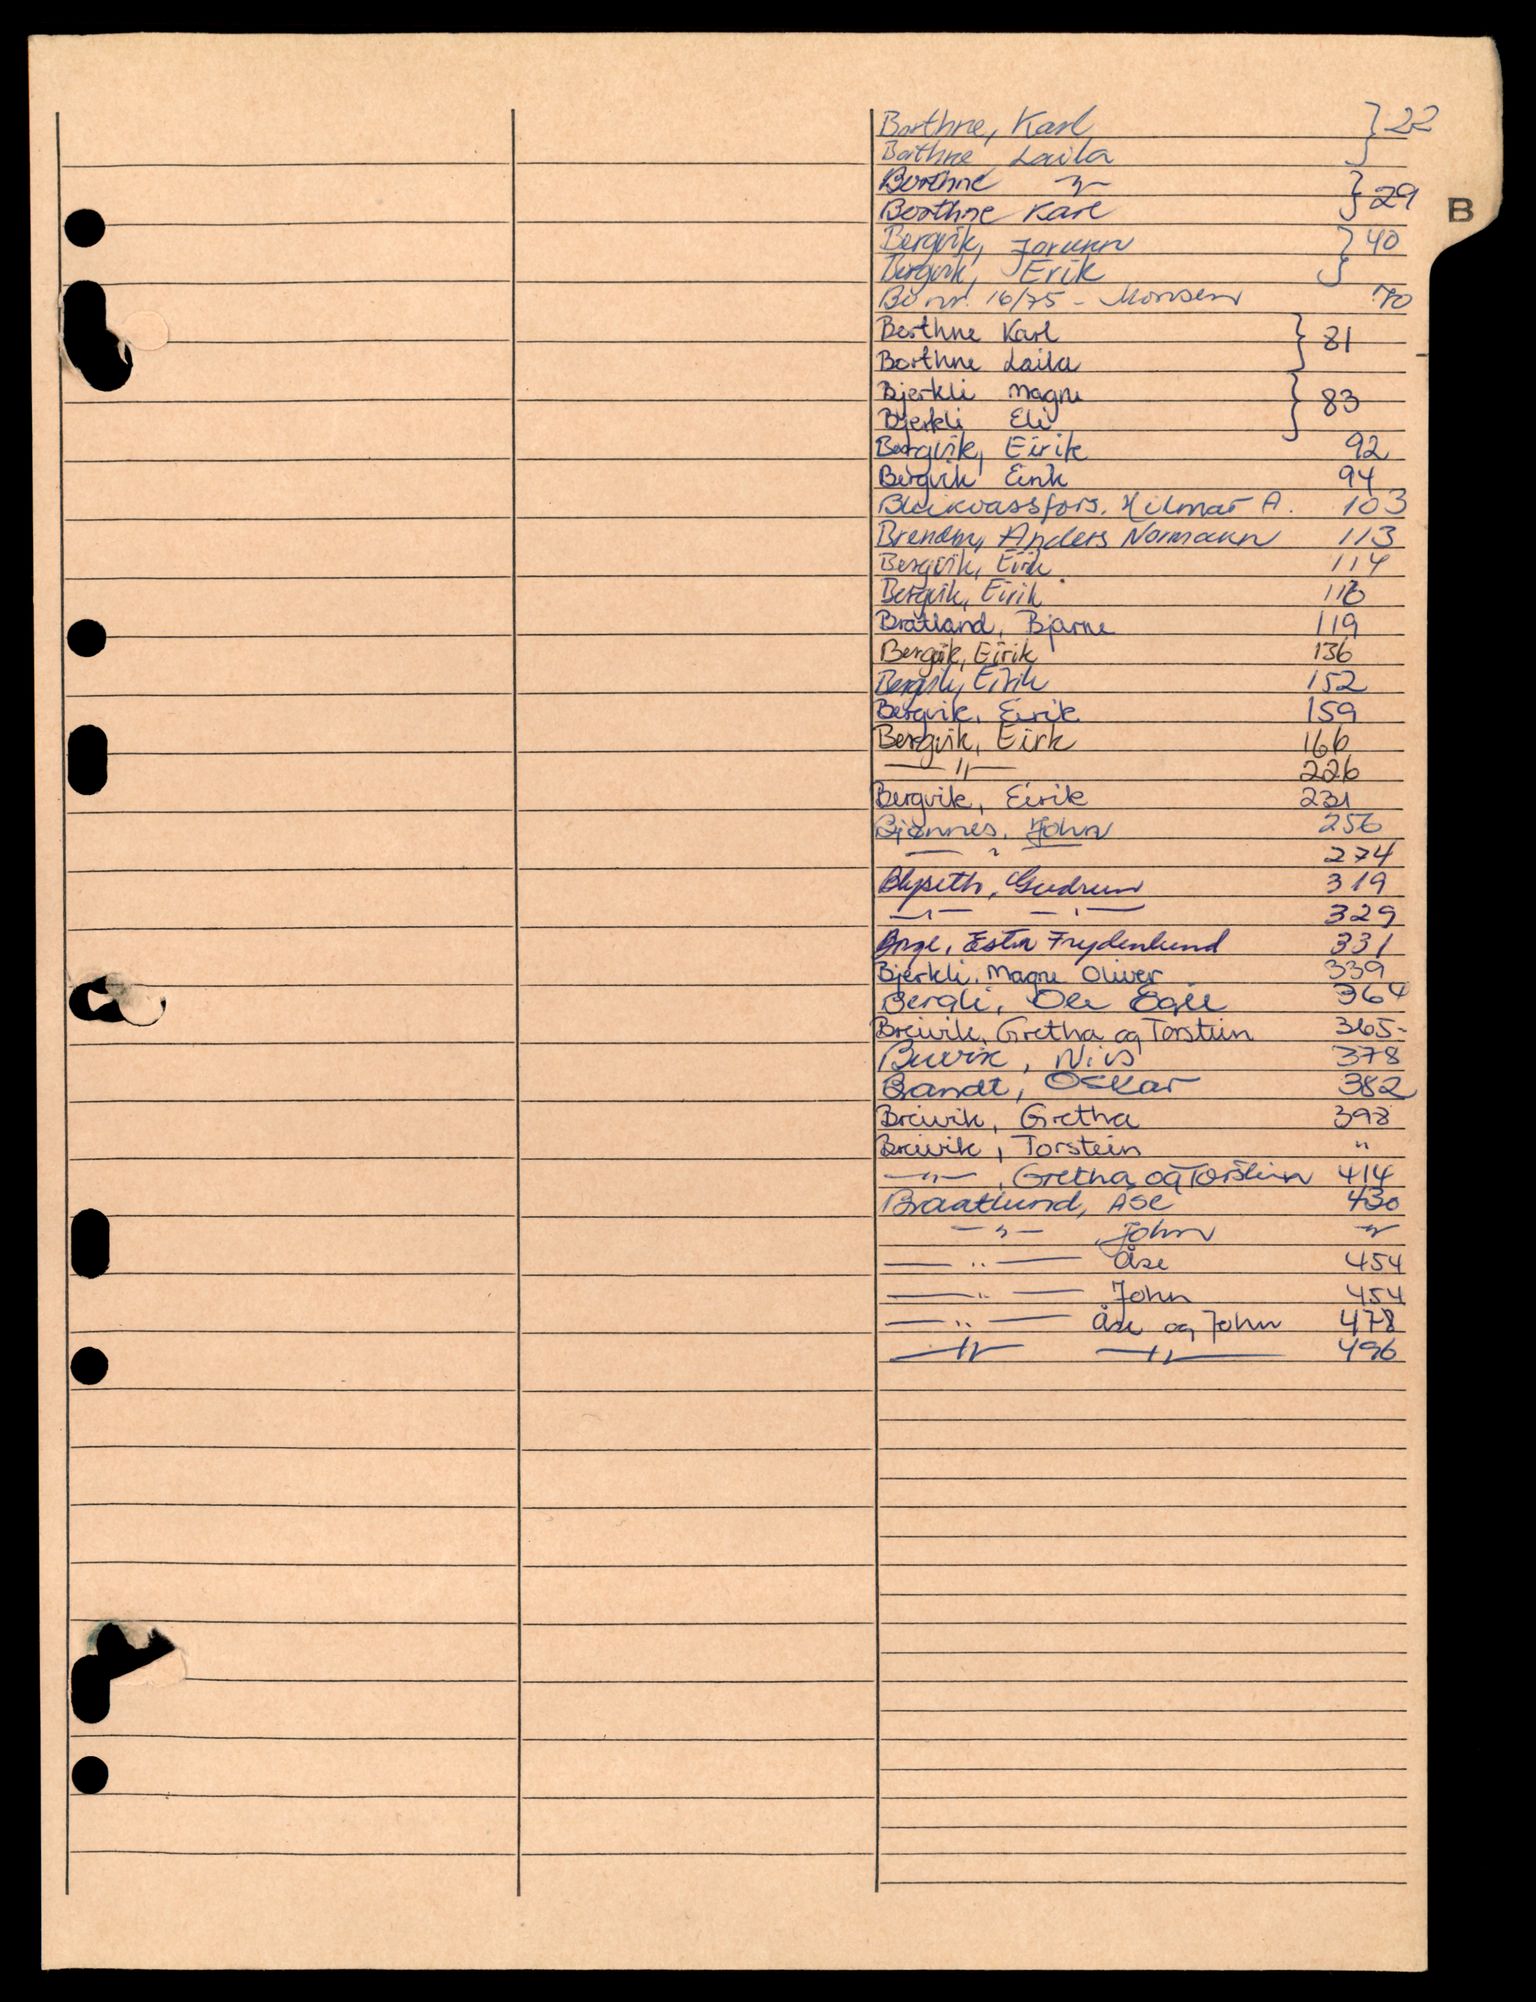 Borthne, Karl } 22
Borthne, Laila
Borthne -"- } 29
Borthne Karl
B
Bergvik, Jorunn } 40
Bergvik, Erik
Bo nr. 16/75 - Monsen 70
Borthne Karl } 81
Borthne Laila
Bjerkli Magne } 83
Bjerkli Eli
Bergvik, Eirik 92
Bergvik Eirik 94
Bleikvassfors. Hilmar A. 103
Anders Normann 113
Bergvik, Eirik 114
Bergvik, Eirik 116
Bratland, Bjarne 119
Bergvik, Eirik 136
Bergvik, Eirik 152
Bergvik, Eirik 159
Bergvik, Eirk 166
—"— 226
Bergvik, Eirik 231
Bjønnes, John 256
— " — 274
Blyseth, Gudrun 319
—"— —"— 329
Frydenlund 331
Bjerkli, Magne Oliver 339
Bergli, Ole Egil 364
Breivik, Gretha og Torstein 365-
Buvik, Nils 378
Brandt, Oskar 382
Breivik, Gretha 398
Breivik, Torstein "
—"—, Gretha og Torstein 414
Braatlund, Åse 430
—"— John "
— " — Åse 454
— " — John 454
— " — Åse og John 478
—"— —"— 496